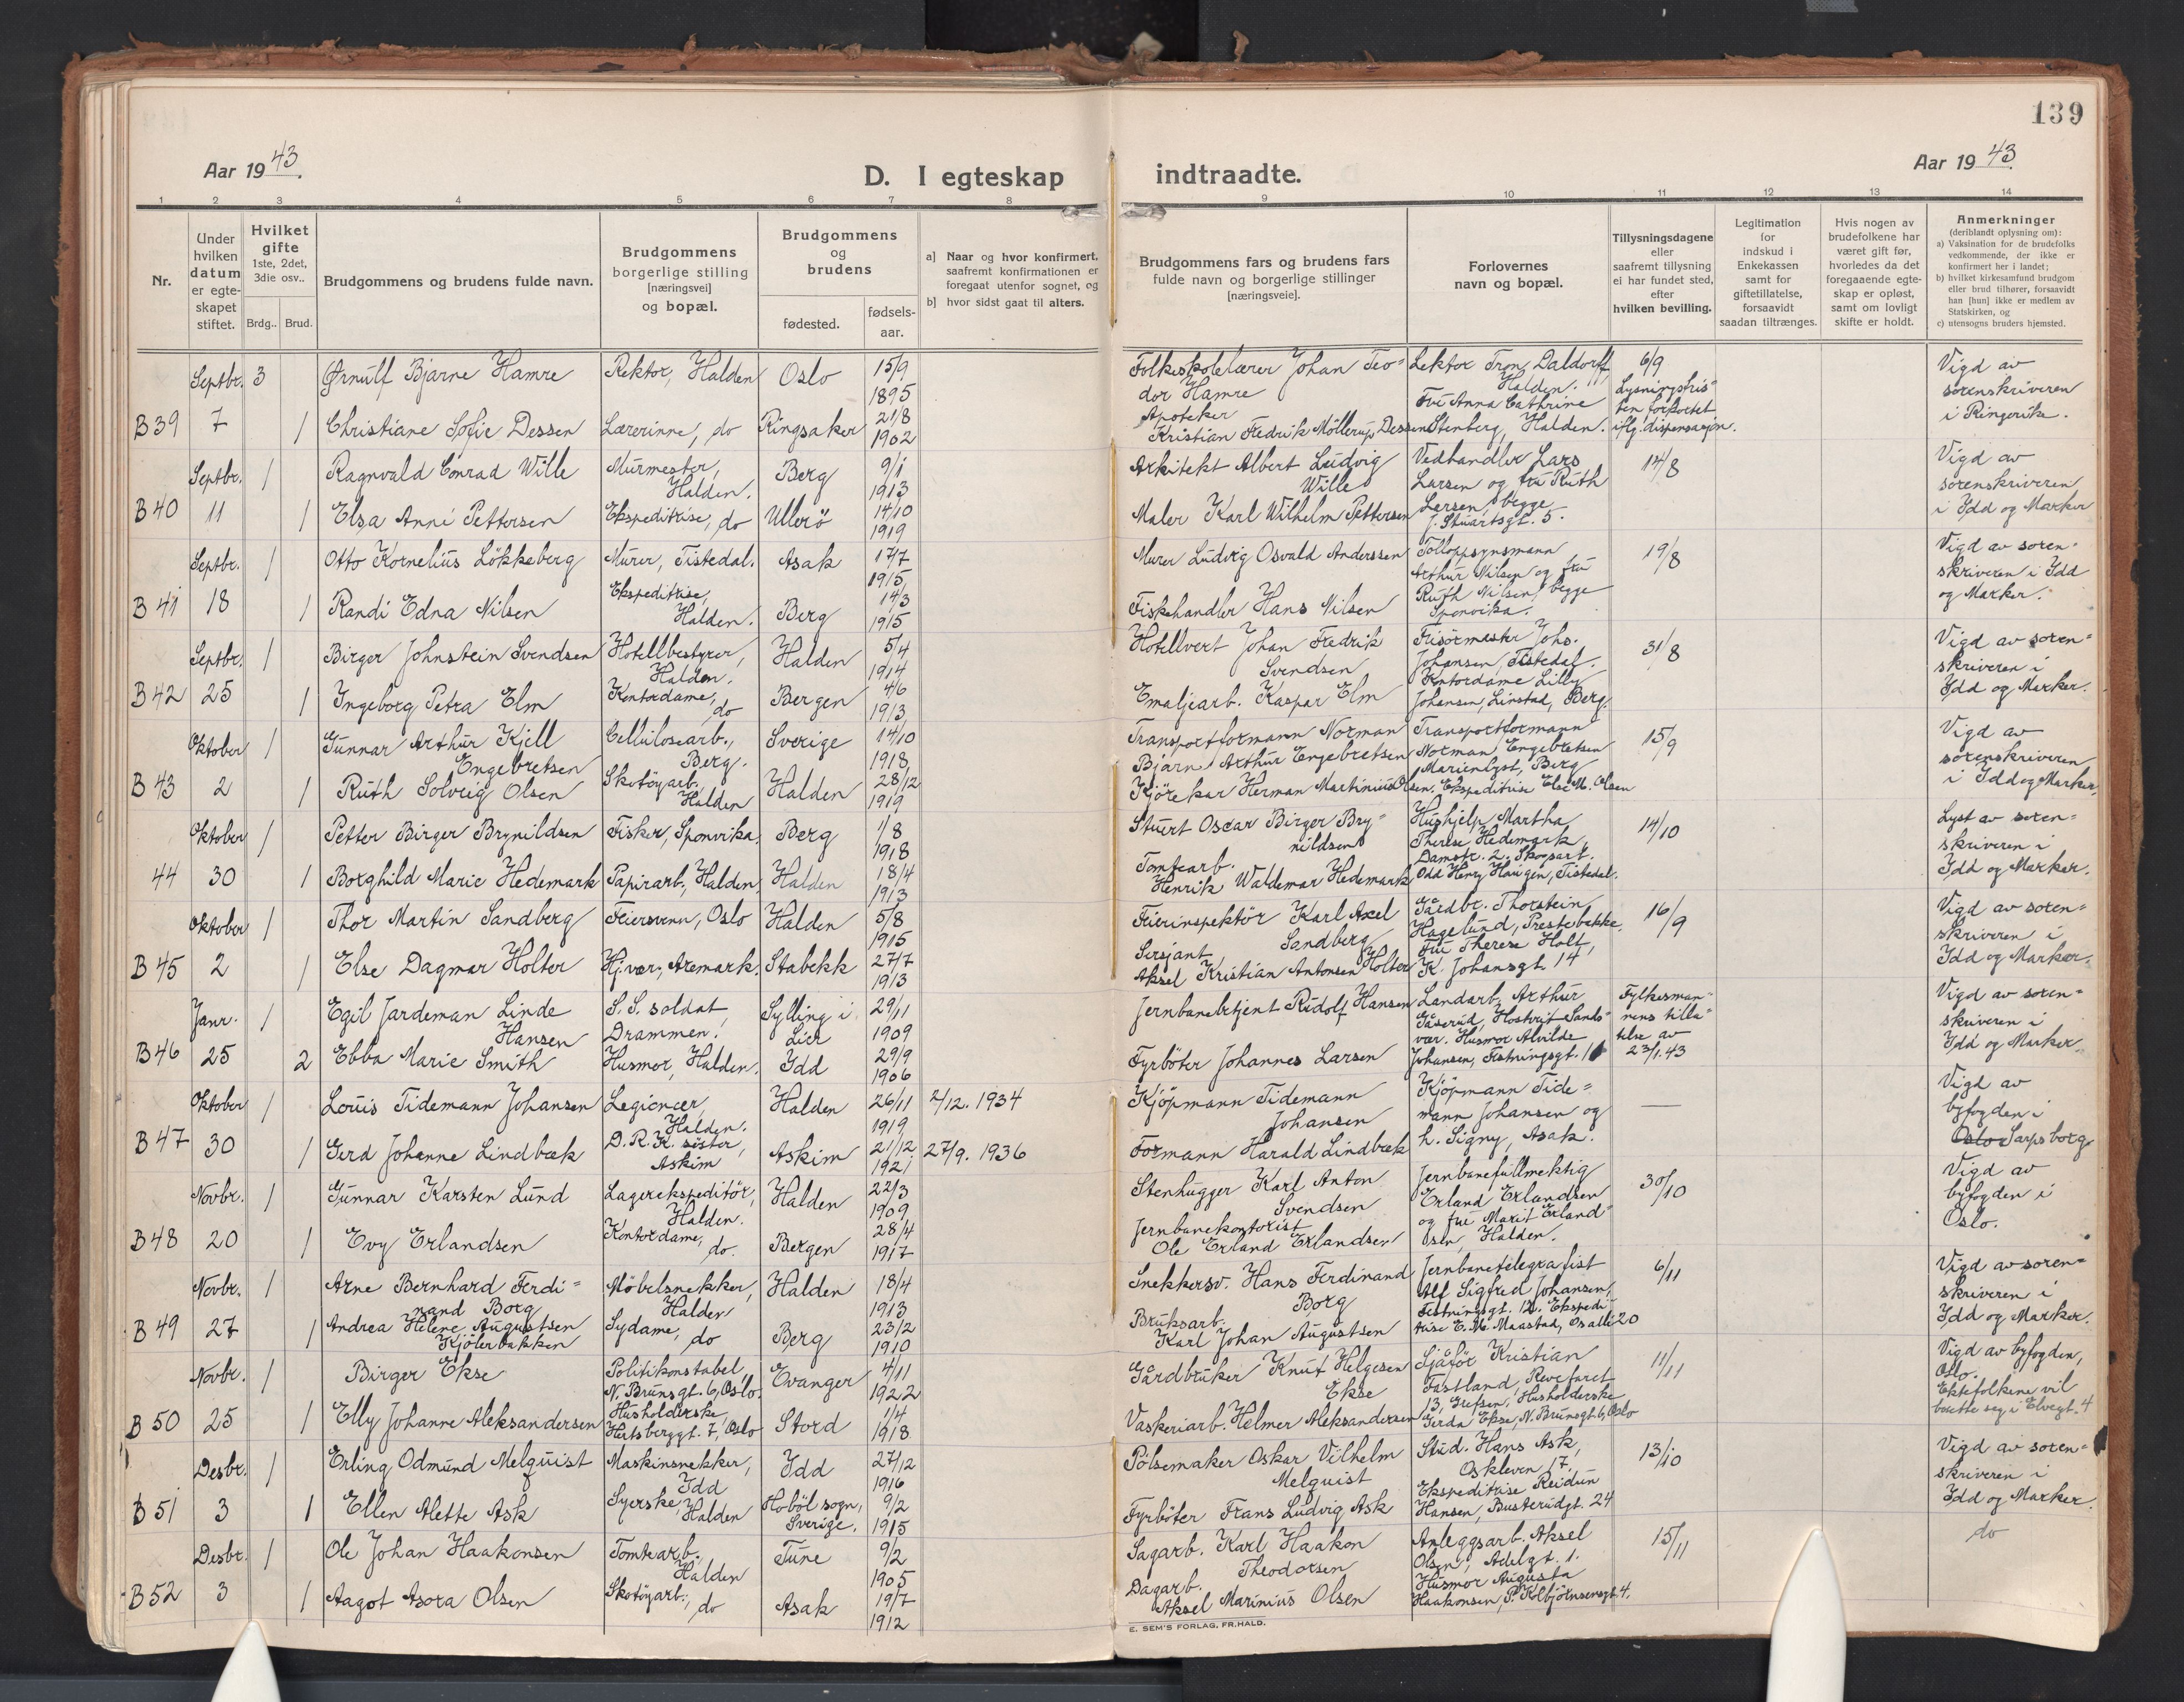 139
Aar 1943.
D. I egteskap indtraadte.
Aar 1943
1 2 3 4 5 6 7 8 9 10 11 12 13 14
Nr.
Under hvilken datum er egte-skapet stiftet.
Hvilket gifte 1ste, 2det, 3die osv..
Brdg.. Brud.
Brudgommens og brudens fulde navn.
Brudgommens borgerlige stilling [næringsvei] og bopæl.
Brudgommens og brudens
fødested.
fødsels-aar.
a] Naar og hvor konfirmert, saafremt konfirmationen er foregaat utenfor sognet, og
b] hvor sidst gaat til alters.
Brudgommens fars og brudens fars fulde navn og borgerlige stillinger [næringsveie].
Forlovernes navn og bopæl.
Tillysningsdagene eller saafremt tillysning ei har fundet sted, efter hvilken bevilling.
Legitimation for indskud i Enkekassen samt for giftetillatelse, forsaavidt saadan tiltrænges.
Hvis nogen av brudefolkene har været gift før, hvorledes da det foregaaende egte-skap er opløst, samt om lovligt skifte er holdt.
Anmerkninger (deriblandt oplysning om):
a) Vaksination for de brudefolks vedkommende, der ikke er konfirmert her i landet;
b) hvilket kirkesamfund brudgom eller brud tilhører, forsaavidt han [hun] ikke er medlem av Statskirken, og
c) utensogns bruders hjemsted.
Septbr. 3 Ørnulf Bjarne Hamre Rektor, Halden Oslo 15/9 1895 Folkeskolelærer Johan Teo=dor Hamre Lektor Tron Daldorff, Halden. 6/9 Lysningsfris=ten forkortet iflg. dispensasjon. Vigd av sorenskriveren i Ringerike.
B 39 7 1 Christiane Sofie Dessen Lærerinne, do Ringsaker 21/8 1902 Apoteker Kristian Fredrik Möllerup Dessen Fru Anna Cathrine Stenberg, Halden.
Septbr. 1 Ragnvald Conrad Wille Murmester, Halden. Berg 9/1 1913 Arkitekt Albert Ludvig Wille Vedhandler Lars Larsen og fru Ruth 14/8 Vigd av sorenskriveren i Idd og Marker
B 40 11 1 Elsa Anni Pettersen Ekspeditrise, do Ullerö 14/10 1919 Maler Karl Wilhelm Pettersen Larsen, begge J. Stuartsgt. 5.
Septbr. 1 Otto Kornelius Lökkeberg Murer, Tistedal. Asak 17/7 1915 Murer Ludvig Osvald Anderssen Tolloppsynsmann Arthur Nilsen og fru 19/8 Vigd av soren=skriveren i Idd og Marker.
B 41 18 1 Randi Edna Nilsen Ekspeditrise, Halden. Berg 14/3 1915 Fiskehandler Hans Nilsen Ruth Nilsen, begge Sponvika.
Septbr. 1 Birger Johnstein Svendsen Hotellbestyrer, Halden. Halden 5/4 1914 Hotellvert Johan Fredrik Svendsen Frisörmester Johs. Johansen, Tistedal. 31/8 Vigd av soren=skriveren i Idd og Marker.
B 42 25 1 Ingeborg Petra Elm Kontordame, do Bergen 4/6 1913 Emaljearb. Kaspar Elm Kontordame Lilly Johansen, Linstad, Berg.
Oktober 1 Gunnar Arthur Kjell Engebretsen Cellulosearb., Berg. Sverige 14/10 1918 Transportformann Norman Bjarne Arthur Engebretsen Transportformann Norman Engebretsen Marienlyst, Berg 15/9 Vigd av sorenskriveren i Idd og Marker,
B 43 2 1 Ruth Solveig Olsen Skotöyarb. Halden Halden 28/12 1919 Kjörekar Herman Martinius Olsen. Ekspeditrise Else M. Olsen
Oktober 1 Petter Birger Brynildsen Fisker, Sponvika. Berg 1/8 1918 Stuert Oscar Birger Bry=nildsen Hushjelp Martha Therese Hedemark, Damstr. 2. 14/10 Lyst av soren=skriveren i Idd og Marker.
44 30 1 Borghild Marie Hedemark Papirarb., Halden, Halden 18/4 1913 Tomtearb. Henrik Waldemar Hedemark Skogsarb. Odd Henry Haugen, Tistedal.
Oktober 1 Thor Martin Sandberg Feiersvenn, Oslo Halden 5/8 1915 Feierinspektör Karl Axel Sandberg Gårdbr. Thorstein Hagelund, Prestebakke, 16/9 Vigd av soren=skriveren i Idd og Marker.
B 45 2 1 Else Dagmar Holter Hj.vær., Aremark. Stabekk 27/7 1913 Sersjant Aksel Kristian Antonsen Holter Fru Therese Holt, K. Johansgt. 14
Janr. 1 Egil Jardeman Linde Hansen S. S. soldat, Drammen. Sylling i Lier 29/11 1909 Jernbanebetjent Rudolf Hansen Landarb. Arthur Fylkesman=nens tilla=telse av 23/1.43 Vigd av soren=skriveren i Idd og Marker
B 46 25 2 Ebba Marie Smith Husmor, Halden. Idd 29/9 1906 Fyrböter Johannes Larsen Husmor Alvilde Johansen, Festningsgt.
Oktober 1 Louis Tidemann Johansen Legionær, Halden. Halden 26/11 1919 2/12. 1934 Kjöpmann Tidemann Johansen Kjöpmann Tide=mann Johansen og — Vigd av byfogden i Oslo Sarpsborg
B 47 30 1 Gerd Johanne Lindbæk D. R. K. söster, Askim Askim 21/12 1921 27/9. 1936 Formann Harald Lindbæk h. Signy, Asak.
Novbr. 1 Gunnar Karsten Lund Lagerekspeditör, Halden. Halden 22/3 1909 Stenhugger Karl Anton Svendsen Jernbanefullmektig Erland Erlandsen 30/10 Vigd av byfogden i Oslo.
B 48 20 1 Evy Erlandsen Kontordame, do. Bergen 28/4 1917 Jernbanekontorist Ole Erland Erlandsen og fru Marit Erland=sen, Halden.
Novbr. 1 Arne Bernhard Ferdi=nand Borg Möbelsnekker, Halden Halden 18/4 1913 Snekkersv. Hans Ferdinand Borg Jernbanetelegrafist Alf Sigfred Johansen, Festningsgt. 12. 6/11 Vigd av soren=skriveren i Idd og Marker.
B 49 27 1 Andrea Helene Augustsen Kjölerbakken Sydame, do Berg 23/2 1910 Bruksarb. Karl Johan Augustsen Ekspedi=trise E. M. Maastad, Os allé 20
Novbr. 1 Birger Ekse Politikonstabel, N. Brunsgt. 6, Oslo. Evanger 4/11 1922 Gårdbruker Knut Helgesen Ekse Sjåför Kristian Fastland, Revefaret 13, Grefsen. 11/11 Vigd av byfogden, Oslo. Ektefolkene vil bosette seg i Elvegt. 4
B 50 25 1 Elly Johanne Aleksandersen Husholderske, Hertsberggt. 7, Oslo Stord 1/4 1918 Vaskeriarb. Helmer Aleksandersen Husholderske Gerda Ekse, N. Brunsgt. 6, Oslo
Desbr. 1 Erling Odmund Melquist Maskinsnekker, Idd Idd 27/12 1916 Pölsemaker Oskar Vilhelm Melquist Stud. Hans Ask, Oskleven 17, 13/10 Vigd av soren=skriveren i Idd og Marker.
B 51 3 1 Ellen Alette Ask Syerske, Halden Hoböl sogn, Sverige. 9/2 1915 Fyrböter Frans Ludvig Ask Ekspeditrise Reidun Hansen, Busterudgt. 24
Desbr. 1 Ole Johan Haakonsen Tomtearb., Halden Tune 9/2 1905 Sagarb. Karl Haakon Theodorsen Anleggsarb. Aksel Olsen, Adelgt. 1. 15/11 do
B 52 3 1 Aagot Asora Olsen Skotöyarb., do Asak 19/7 1912 Dagarb. Aksel Marinius Olsen Husmor Augusta Haakonsen, P. Kolbjörnsensgt. 4.
E. SEM'S FORLAG, FR.HALD.